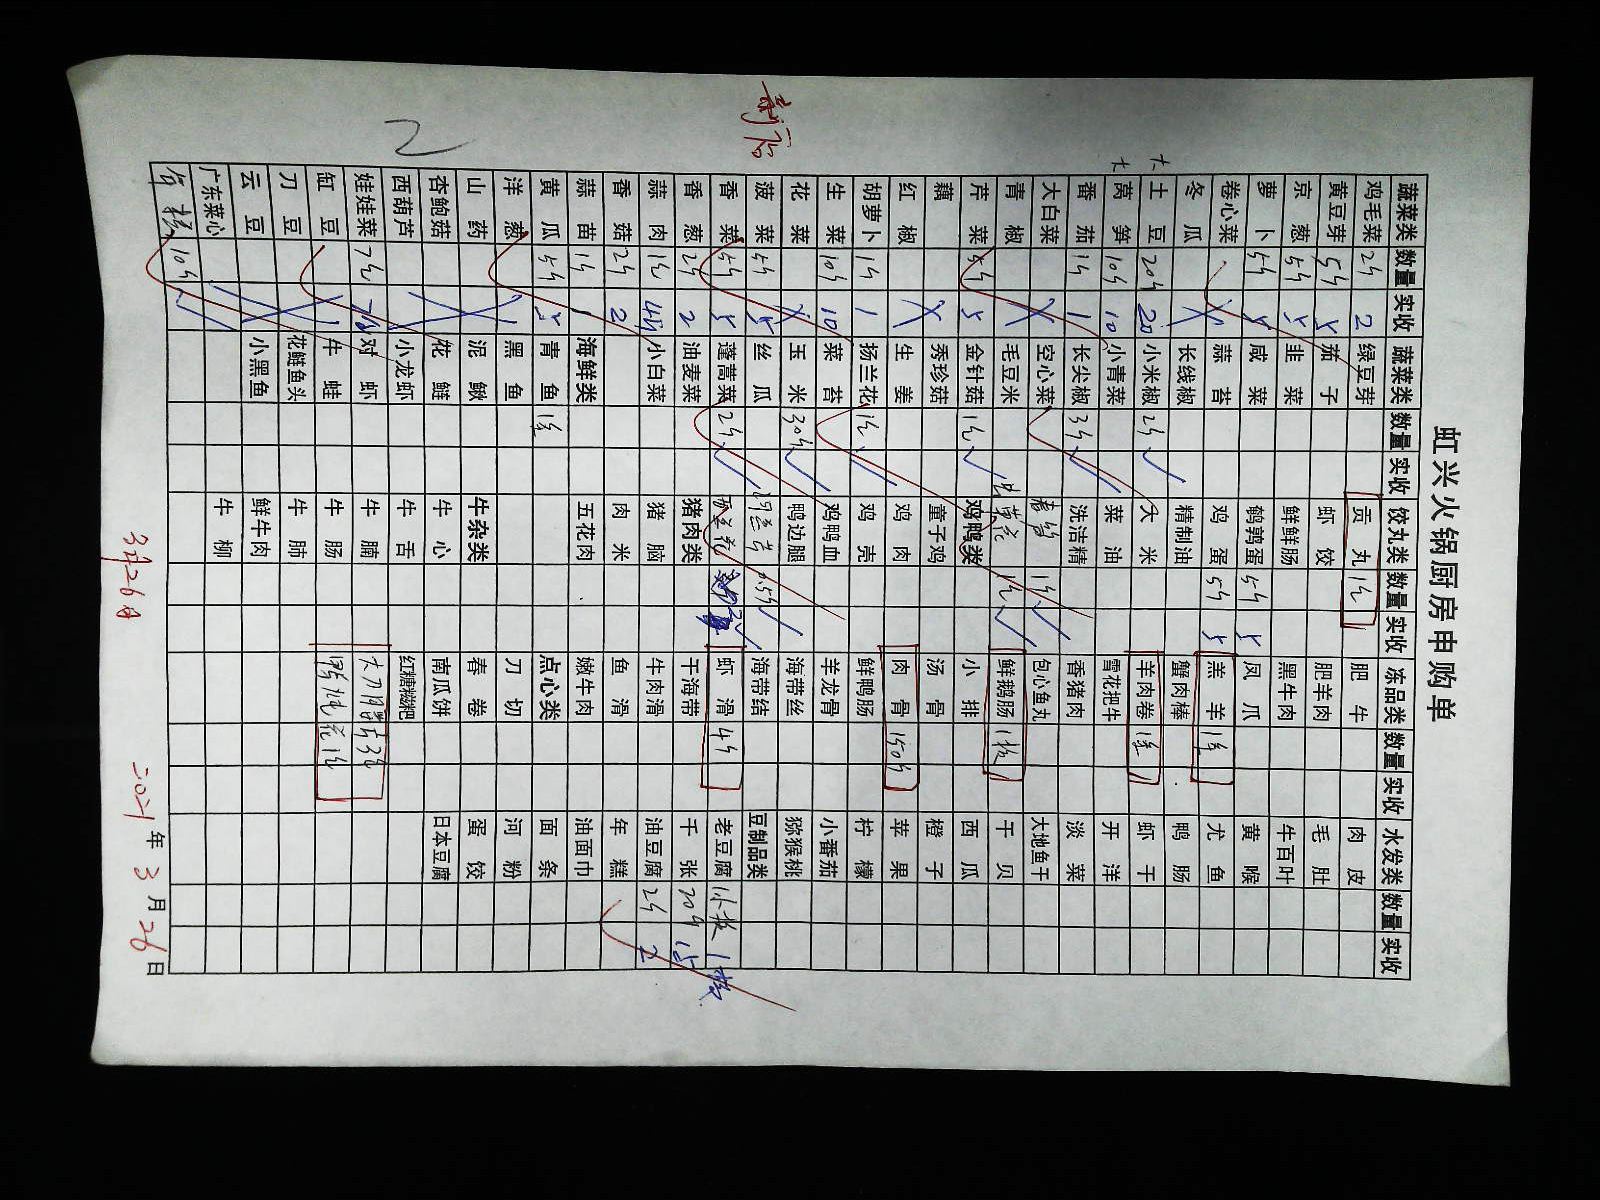 虹兴火锅厨房申购单
蔬菜类 数量 实收 蔬菜类 数量 实收 饺丸类 数量 实收 冻品类 数量 实收 水发类 数量 实收
鸡毛菜 2斤 2 绿豆芽 贡丸 1包 肥牛 肉皮
黄豆芽 5斤 5 茄子 虾饺 肥羊肉 毛肚
京葱 5斤 5 韭菜 鲜鲜肠 黑牛肉 牛百叶
萝卜 5斤 5 咸菜 鹌鹑蛋 5斤 5 凤爪 黄喉
卷心菜 蒜苔 鸡蛋 5斤 5 羔羊 尤鱼
冬瓜 长线椒 精制油 蟹肉棒 鸭肠
大 土豆 20斤 20 小米椒 2斤 大米 羊肉卷 虾干
大 莴笋 10斤 10 小青菜 菜油 雪花把牛 开洋
番茄 1斤 1 长尖椒 3斤 洗洁精 香猪肉 淡菜
大白菜 空心菜 1包 包心鱼丸 大地鱼干
青椒 毛豆米 1包 鲜鹅肠 干贝
芹菜 5斤 5 金针菇 1包 鸡鸭类 小排 西瓜
藕 秀珍菇 童子鸡 汤骨 橙子
红椒 生姜 鸡肉 肉骨 150斤 苹果
胡萝卜 1斤 1 扬兰花 1包 鸡壳 鲜鸭肠 柠檬
生菜 10斤 10 菜苔 鸡鸭血 羊龙骨 小番茄
花菜 玉米 30斤 鸭边腿 海带丝 猕猴桃
菠菜 5斤 5 丝瓜 0.5斤 海带结 豆制品类
香菜 5斤 5 蓬蒿菜 2斤 虾滑 4斤 老豆腐 1板
香葱 2斤 2 油麦菜 猪肉类 干海带 千张 20斤 15
蒜肉 1包 4斤 小白菜 猪脑 牛肉滑 油豆腐 2斤 2
香菇 2斤 2 肉米 鱼滑 年糕
蒜苗 1斤 1 海鲜类 五花肉 嫩牛肉 油面巾
黄瓜 5斤 5 青鱼 1条 点心类 面条
洋葱 黑鱼 刀切 河粉
山药 泥鳅 牛杂类 春卷 蛋饺
杏鲍菇 花鲢 牛心 南瓜饼 日本豆腐
西葫芦 小龙虾 牛舌 红糖糍粑
娃娃菜 7包 对虾 牛腩
缸豆 牛蛙 牛肠
刀豆 花鲢鱼头 牛肺
云豆 小黑鱼 鲜牛肉
广东菜心 牛柳
10斤
2
3月26日
2021年3月26日